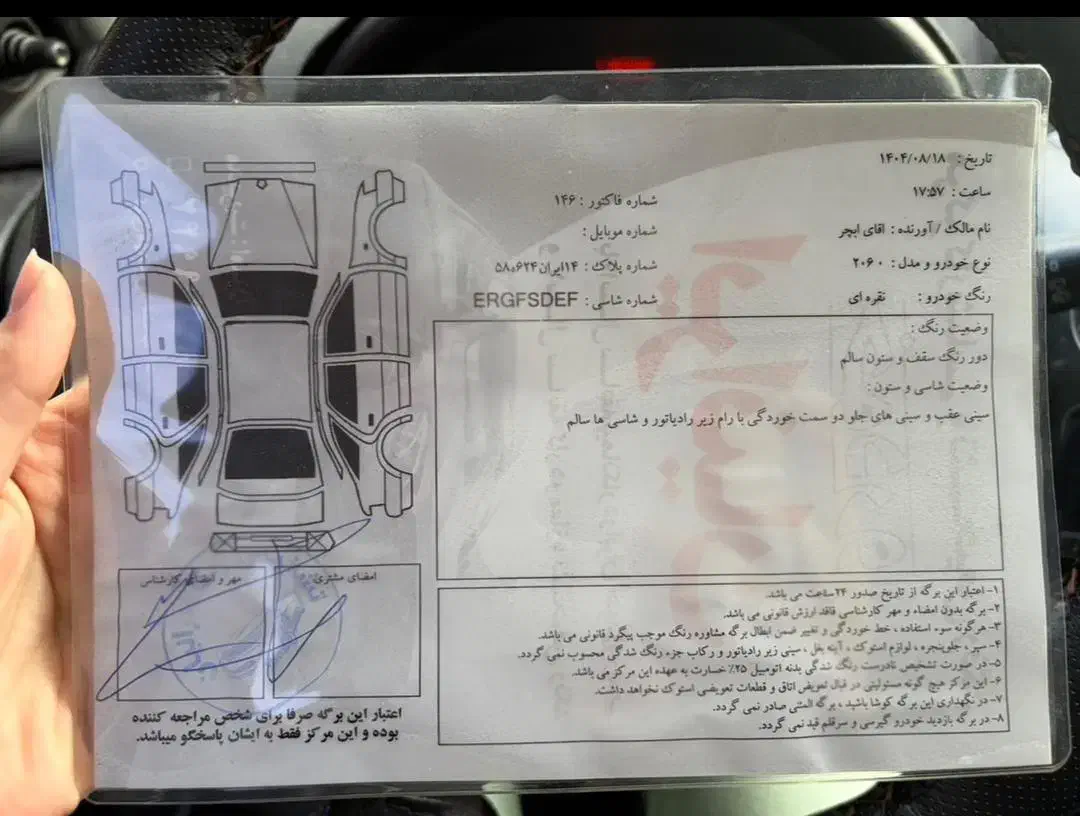 تاریخ : ۱۴۰۴/۰۸/۱۸
ساعت : ۱۷:۵۷
شماره فاکتور : ۱۴۶
نام مالک / آورنده : اقای ابچر
شماره موبایل :
نوع خودرو و مدل : ۲۰۶۰
شماره پلاک : ۱۴ایران۵۸ه۶۲۴
رنگ خودرو : نقره ای
شماره شاسی : ERGFSDEF
وضعیت رنگ :
دور رنگ سقف و ستون سالم
وضعیت شاسی و ستون :
سینی عقب و سینی های جلو دو سمت خوردگی با رام زیر رادیاتور و شاسی ها سالم
۱- اعتبار این برگه از تاریخ صدور ۲۴ساعت می باشد.
۲- برگه بدون امضاء و مهر کارشناسی فاقد ارزش قانونی می باشد.
۳- هرگونه سوء استفاده ، خط خوردگی و تغییر ضمن ابطال برگه مشاوره رنگ موجب پیگرد قانونی می باشد.
۴- سپر ، جلوپنجره ، لوازم استوک ، آینه بغل ، سینی زیر رادیاتور و رکاب جزء رنگ شدگی محسوب نمی گردد.
۵- در صورت تشخیص نادرست رنگ شدگی بدنه اتومبیل ۲۵٪ خسارت به عهده این مرکز می باشد.
۶- این مرکز هیچ گونه مسئولیتی در قبال تعویض اتاق و قطعات تعویضی استوک نخواهد داشت.
۷- در نگهداری این برگه کوشا باشید ، برگه المثنی صادر نمی گردد.
۸- در برگه بازدید خودرو گیرسی و سرقلم قید نمی گردد.
امضای مشتری
مهر و امضای کارشناس
اعتبار این برگه صرفا برای شخص مراجعه کننده
بوده و این مرکز فقط به ایشان پاسخگو میباشد.